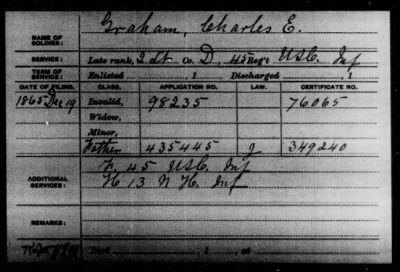 NAME OF SOLDIER: Graham, Charles E.
SERVICE: Late rank, 2 Lt Co. D, 45 Reg't U.S.C. Inf
TERM OF SERVICE: Enlisted , 1 Discharged , 1
DATE OF FILING. CLASS. APPLICATION NO. LAW. CERTIFICATE NO.
1865 Dec 19 Invalid, 98235 76065
Widow,
Minor,
Father 435445 J 349240
ADDITIONAL SERVICES: F. 45 U.S.C. Inf
H 13 N H. Inf
REMARKS:
Died , 1 , at